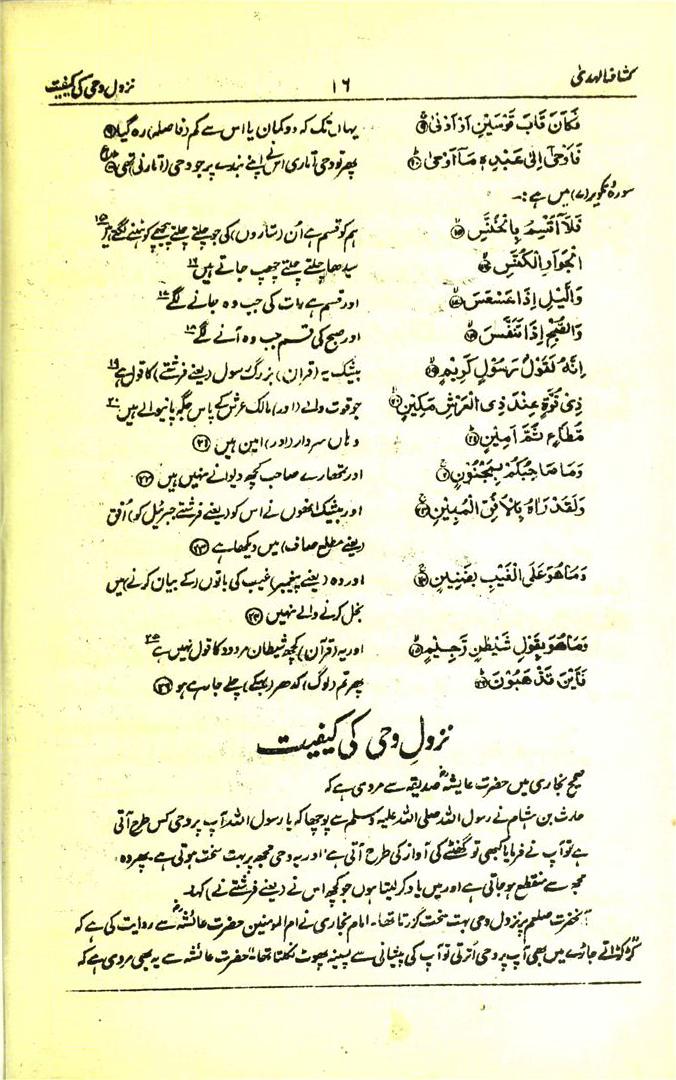 کشاف الہدیٰ ۱۶ نزول وحی کی کیفیت
فَكَانَ قَابَ قَوْسَيْنِ اَوْ اَدْنٰى ۹ یہاں تک کہ دو کمان یا اس سے کم (فاصلہ) رہ گیا ۹
فَاَوْحٰى اِلٰى عَبْدِهٖ مَآ اَوْحٰى ۱۰ پھر تو وحی اتاری اس نے اپنے بندے پر جو وحی (اتارنی) تھی ۱۰
سورہ تکویر (۷) میں ہے :۔
فَلَآ اُقْسِمُ بِالْخُنَّسِ ۱۵ ہم کو قسم ہے اُن (ستاروں) کی جو چلتے چلتے پیچھے کو ہٹنے لگتے ہیں ۱۵
الْجَوَارِ الْكُنَّسِ ۱۶ سیدھا چلتے چلتے چھپ جاتے ہیں ۱۶
وَالَّيْلِ اِذَا عَسْعَسَ ۱۷ اور قسم ہے رات کی جب وہ جانے لگے ۱۷
وَالصُّبْحِ اِذَا تَنَفَّسَ ۱۸ اور صبح کی قسم جب وہ آنے لگے ۱۸
اِنَّهٗ لَقَوْلُ رَسُوْلٍ كَرِيْمٍ ۱۹ بیشک یہ (قران) بزرگ رسول (یعنے فرشتے) کا قول ہے ۱۹
ذِيْ قُوَّةٍ عِنْدَ ذِي الْعَرْشِ مَكِيْنٍ ۲۰ جو قوت والے (اور) مالک عرش کے پاس جگہ پانیوالے ہیں ۲۰
مُّطَاعٍ ثَمَّ اَمِيْنٍ ۲۱ وہاں سردار (اور) امین ہیں ۲۱
وَمَا صَاحِبُكُمْ بِمَجْنُوْنٍ ۲۲ اور تمھارے صاحب کچھ دیوانے نہیں ہیں ۲۲
وَلَقَدْ رَاٰهُ بِالْاُفُقِ الْمُبِيْنِ ۲۳ اور بیشک انھوں نے اس کو (یعنے فرشتے جبرئیل کو) اُفق
(یعنے مطلع صاف) میں دیکھا ہے ۲۳
وَمَا هُوَ عَلَى الْغَيْبِ بِضَنِيْنٍ ۲۴ اور وہ (یعنے پیغمبر) غیب کی باتوں (کے بیان کرنے) میں
بخل کرنے والے نہیں ۲۴
وَمَا هُوَ بِقَوْلِ شَيْطٰنٍ رَّجِيْمٍ ۲۵ اور یہ (قرآن) کچھ شیطان مردود کا قول نہیں ہے ۲۵
فَاَيْنَ تَذْهَبُوْنَ ۲۶ پھر تم (لوگ) کدھر (بہکے) چلے جا رہے ہو ۲۶
نزولِ وحی کی کیفیت
صحیح بخاری میں حضرت عایشہؓ صدیقہ سے مروی ہے کہ
حارث بن ہشام نے رسول اللہ صلی اللہ علیہ وسلم سے پوچھا کہ یا رسول اللہ آپ پر وحی کس طرح آتی
ہے تو آپ نے فرمایا کبھی تو گھنٹے کی آواز کی طرح آتی ہے اور یہ وحی مجھ پر بہت سخت ہوتی ہے۔ پھر وہ
مجھ سے منقطع ہو جاتی ہے اور میں یاد کر لیتا ہوں جو کچھ اس نے (یعنے فرشتے نے) کہا۔
آنحضرت صلعم پر نزول وحی بہت سخت گزرتا تھا۔ امام بخاری نے ام المومنین حضرت عائشہؓ سے روایت کی ہے کہ
کڑکڑاتے جاڑے میں بھی آپ پر وحی اترتی تو آپ کی پیشانی سے پسینہ پھوٹ نکلتا تھا۔ حضرت عائشہ سے یہ بھی مروی ہے کہ